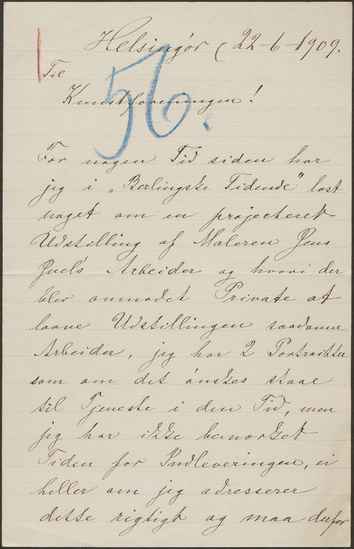 Helsingør (22-6-1909.
Til
Kunstforeningen!
56.
For nogen Tid siden har
jeg i "Berlingske Tidende" læst
noget om en projecteret
Udstilling af Maleren Jens
Juels Arbeider og hvori der
blev anmodet Private at
laane Udstillingen saadanne
Arbeider, jeg har 2 Portraitter
som om det ønskes skal
til Tjeneste i den Tid, men
jeg har ikke bemærket
Tiden for Indleveringen, ei
heller om jeg adresserer
dette rigtigt og maa derfor